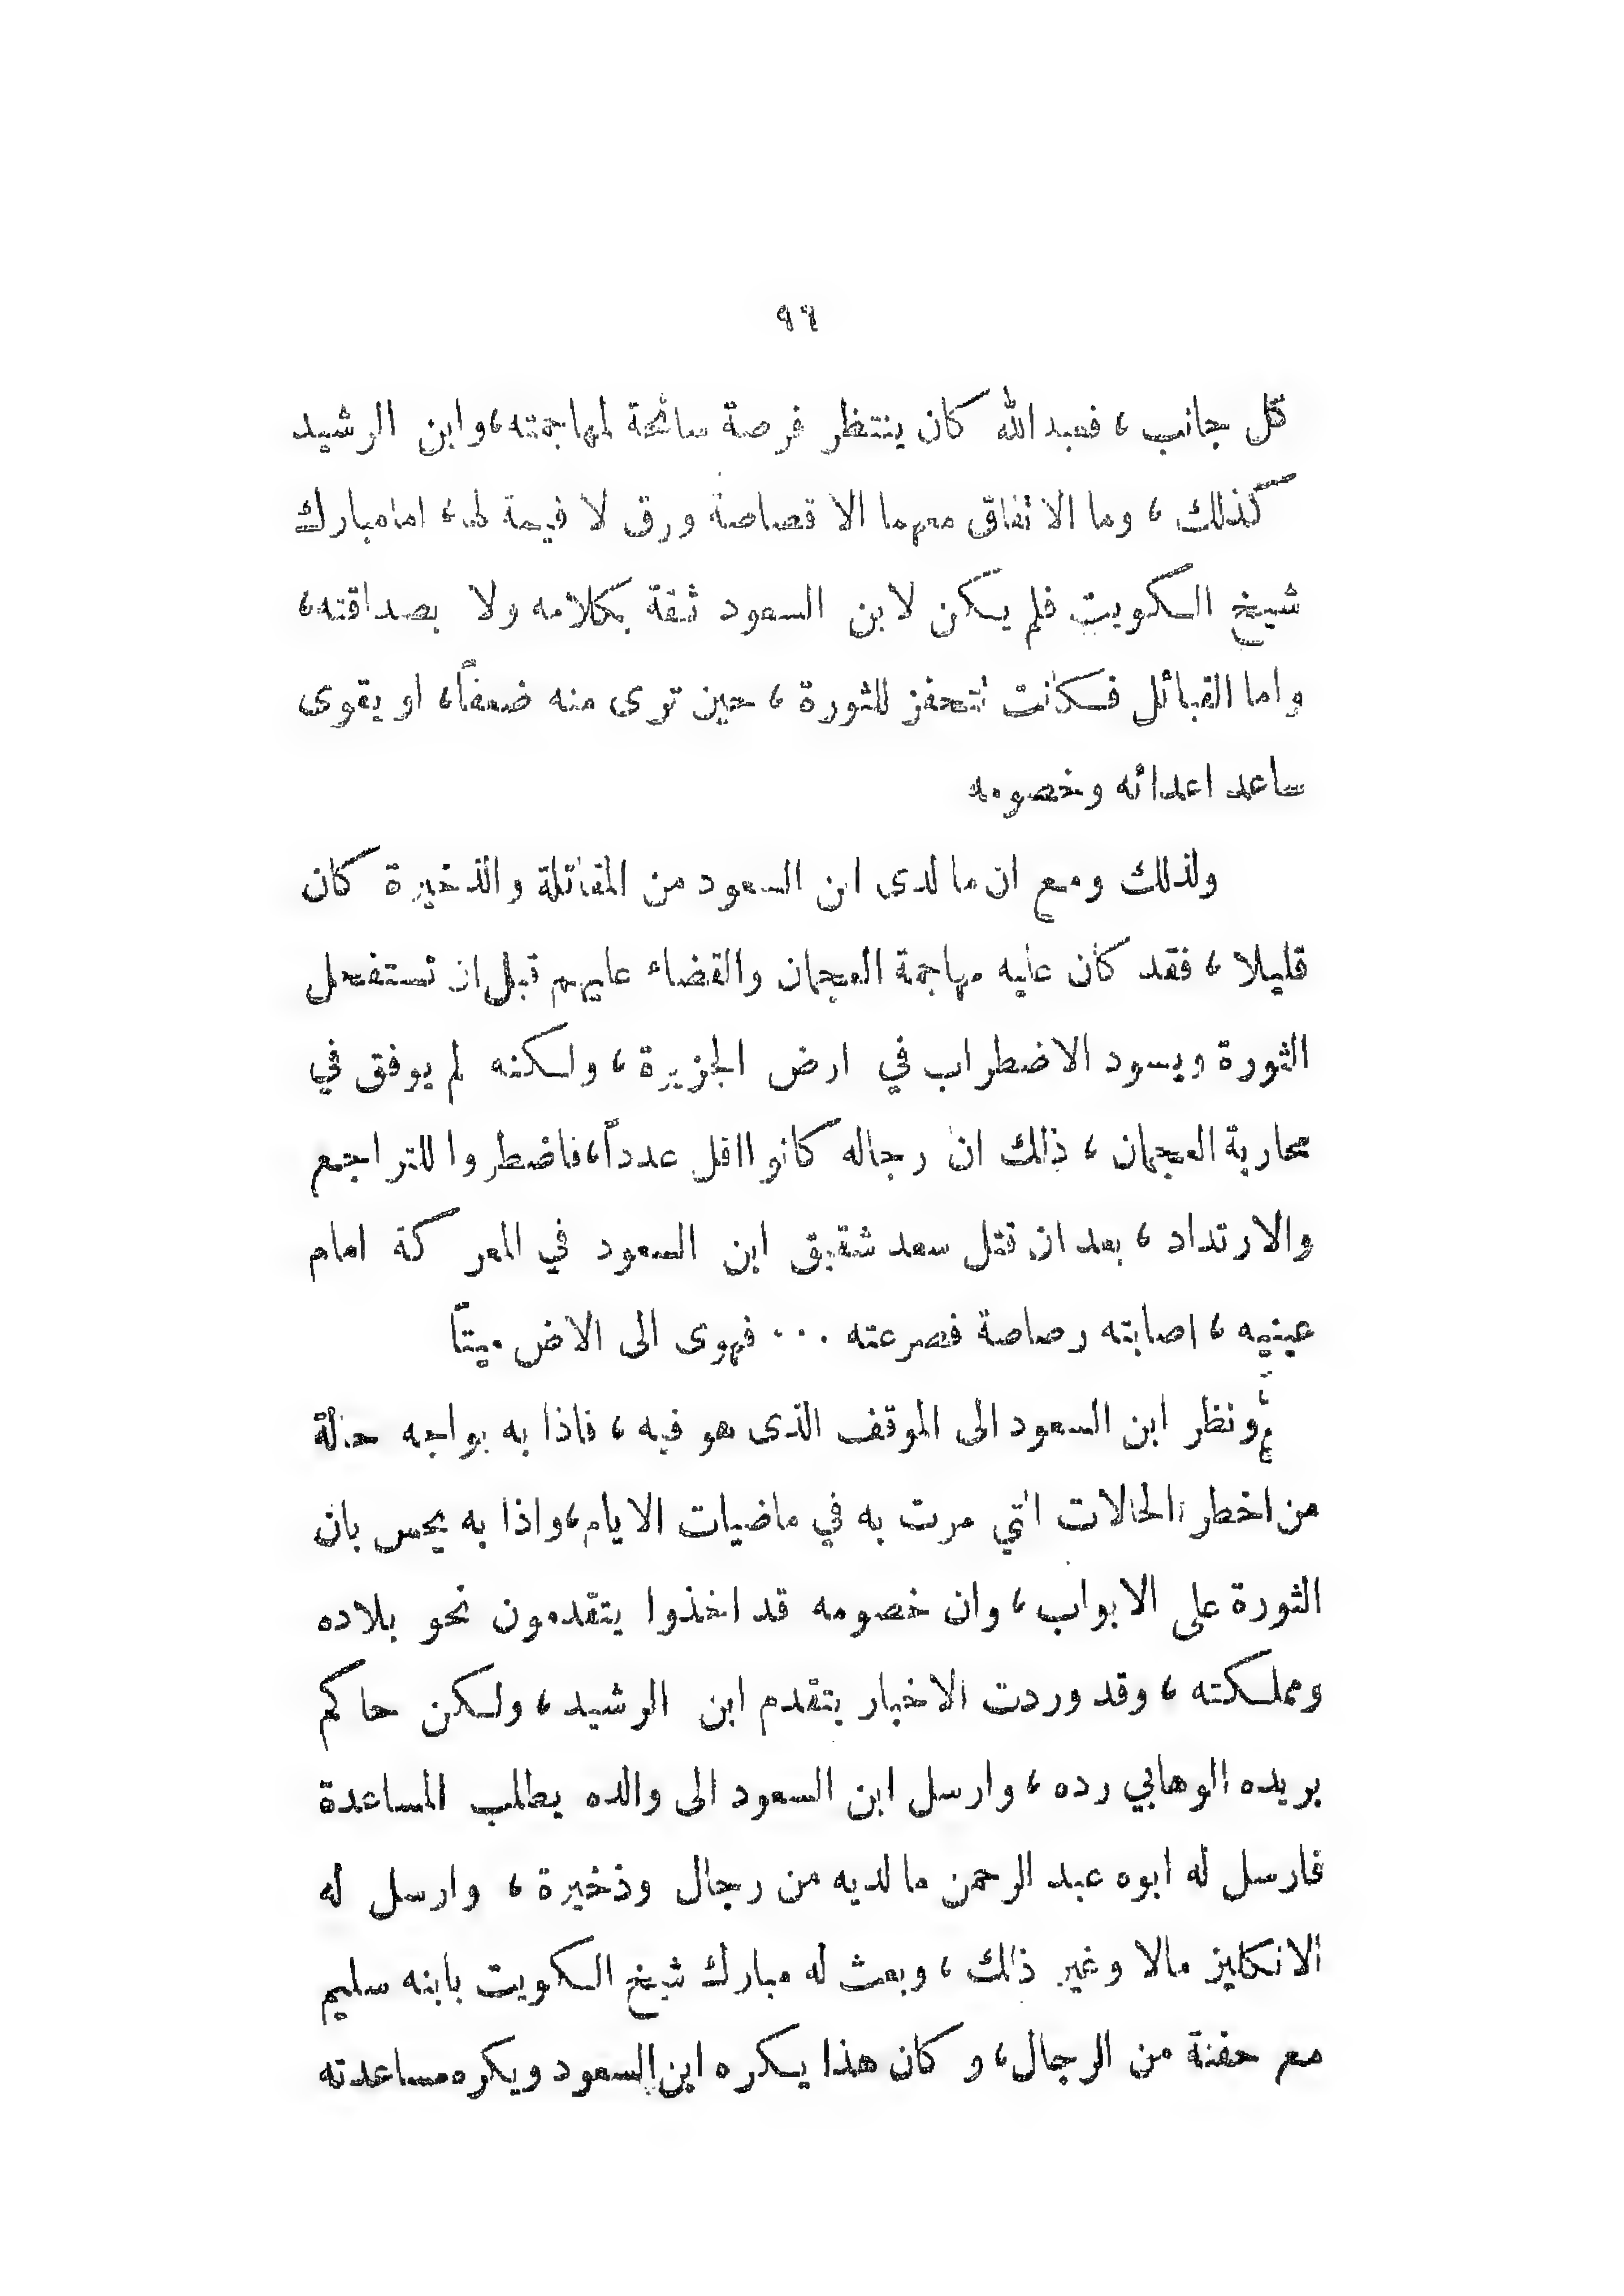 ٩٦
كل جانب ، فعبد الله كان ينتظر فرصة سانحة لمهاجمته، وابن الرشيد
كذلك ، وما الاتفاق معهما الا قصاصة ورق لا قيمة له، اما مبارك
شيخ الكويت فلم يكن لابن السعود ثقة بكلامه ولا بصداقته،
واما القبائل فكانت تتحفز للثورة ، حين ترى منه ضعفاً، او يقوى
ساعد اعدائه وخصومه
ولذلك ومع ان ما لدى ابن السعود من المقاتلة والذخيرة كان
قليلا ، فقد كان عليه مهاجمة العجمان والقضاء عليهم قبل ان تستفحل
الثورة ويسود الاضطراب في ارض الجزيرة ، ولكنه لم يوفق في
محاربة العجمان ، ذلك ان رجاله كانوا اقل عدداً، فاضطروا للتراجع
والارتداد ، بعد ان قتل سعد شقيق ابن السعود في المعركة امام
عينيه ، اصابته رصاصة فصرعته ... فهوى الى الاض ميتاً
ونظر ابن السعود الى الموقف الذى هو فيه ، فاذا به يواجه حالة
من اخطر الحالات التي مرت به في ماضيات الايام، واذا به يحس بان
الثورة على الابواب ، وان خصومه قد اخذوا يتقدمون نحو بلاده
ومملكته ، وقد وردت الاخبار بتقدم ابن الرشيد ، ولكن حاكم
بريده الوهابي رده ، وارسل ابن السعود الى والده يطلب المساعدة
فارسل له ابوه عبد الرحمن ما لديه من رجال وذخيرة ، وارسل له
الانكليز مالا وغير ذلك ، وبعث له مبارك شيخ الكويت بابنه سليم
مع حفنة من الرجال، وكان هذا يكره ابن السعود ويكره مساعدته